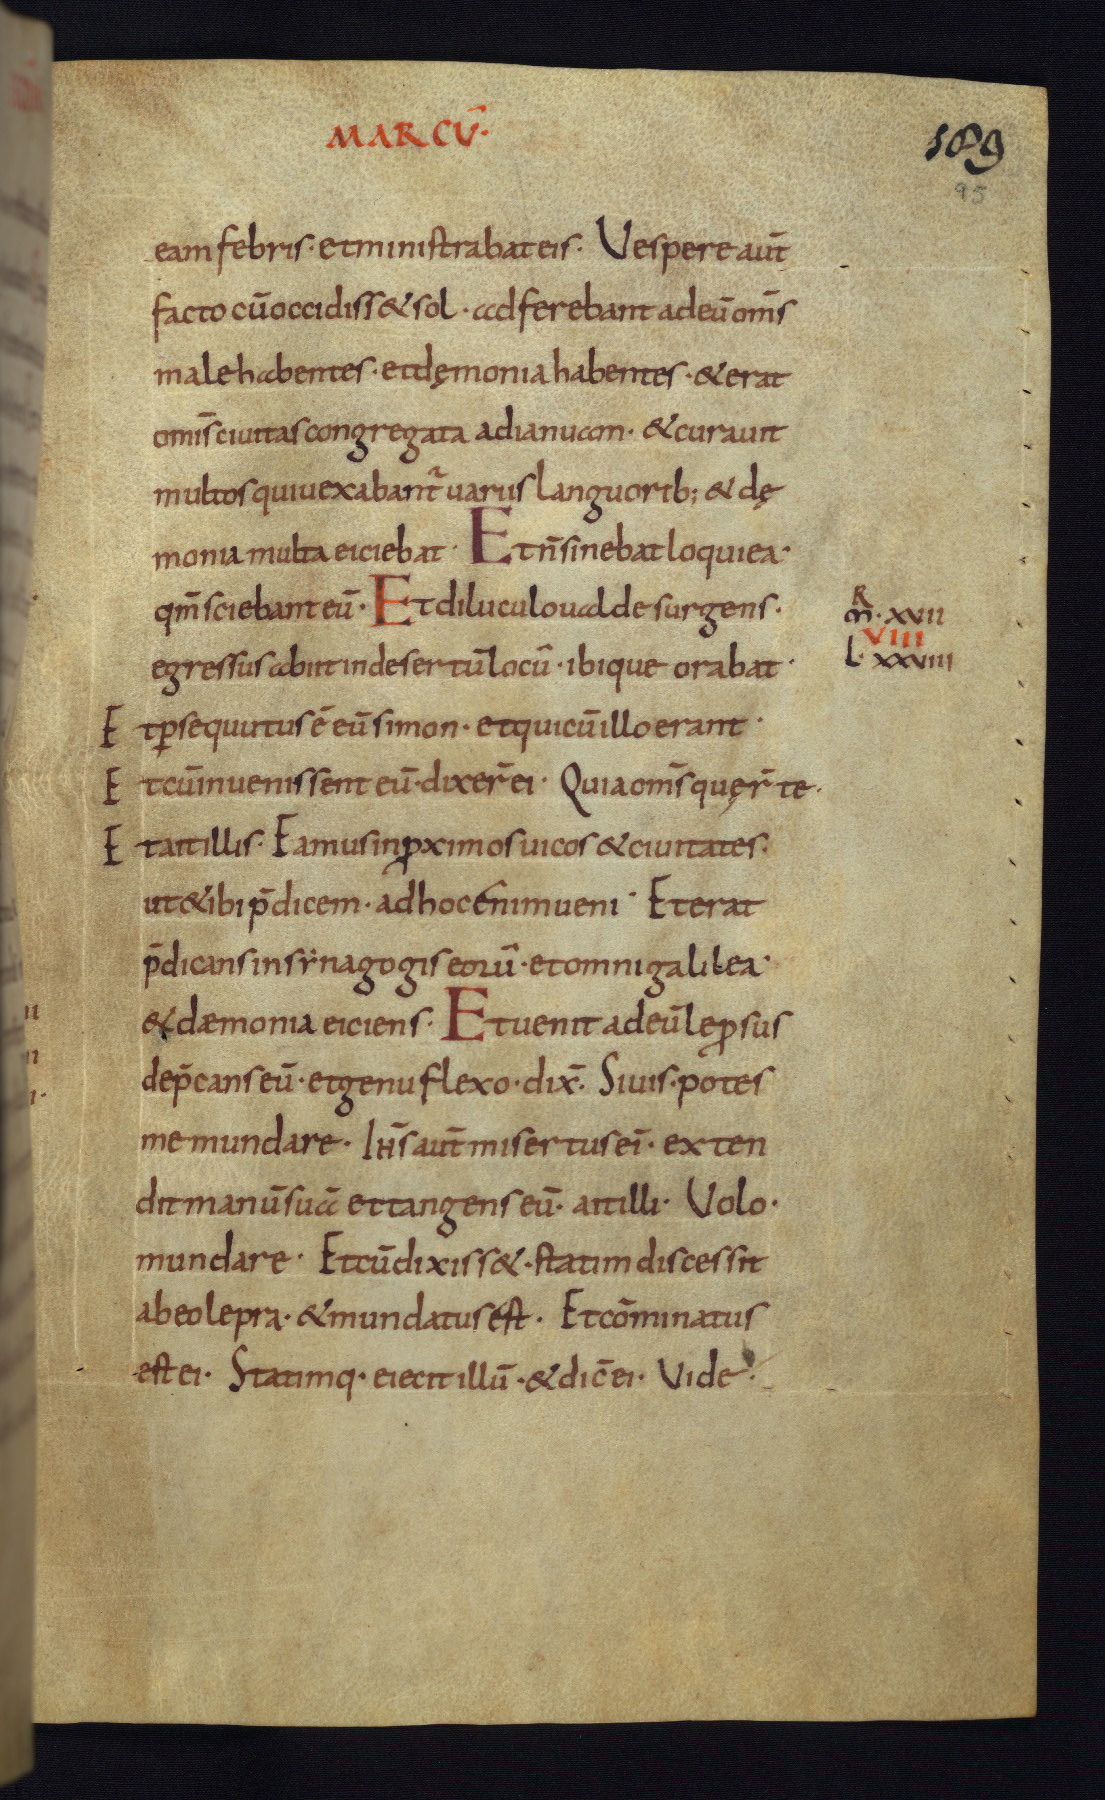 MARCŪ·
189
95
eam febris· et ministrabat eis· Vespere aut̄
facto cū occidiss& sol· adferebant ad eū om̄s
male habentes· et dęmonia habentes· & erat
omīs ciuitas congregata ad ianuam· & curauit
multos qui uexabant᷑ uariis languorib; & dę
monia multa eiciebat· Et n̄ sinebat loqui ea·
qm̄ sciebant eū· Et diluculo ualde surgens·
R
m̄· XVII
VIII
L· XXVIII
egressus abiit in desertū locū· ibique orabat·
Et ꝑsequutus ē eū simon· et qui cū illo erant·
Et cū inuenissent eū· dixer̄ ei· Quia om̄s quęr̄ te·
Et ait illis· Eamus in ꝓximos uicos & ciuitates·
ut & ibi p̄dicem· ad hoc enim ueni· Et erat
p̄dicans in sẏnagogis eorū· et omni galilea·
& dæmonia eiciens· Et uenit ad eū leprosus
dep̄cans eū· et genu flexo· dix̄· Si uis· potes
me mundare· Ihs̄ aut̄ misertus ei̅· exten
dit manū suā et tangens eū· ait illi· Volo·
mundare· Et cū dixiss&· statim discessit
ab eo lepra· & mundatus est· Et cōminatus
est ei· Statimq· eiecit illū· & dic̄ ei· Vide·